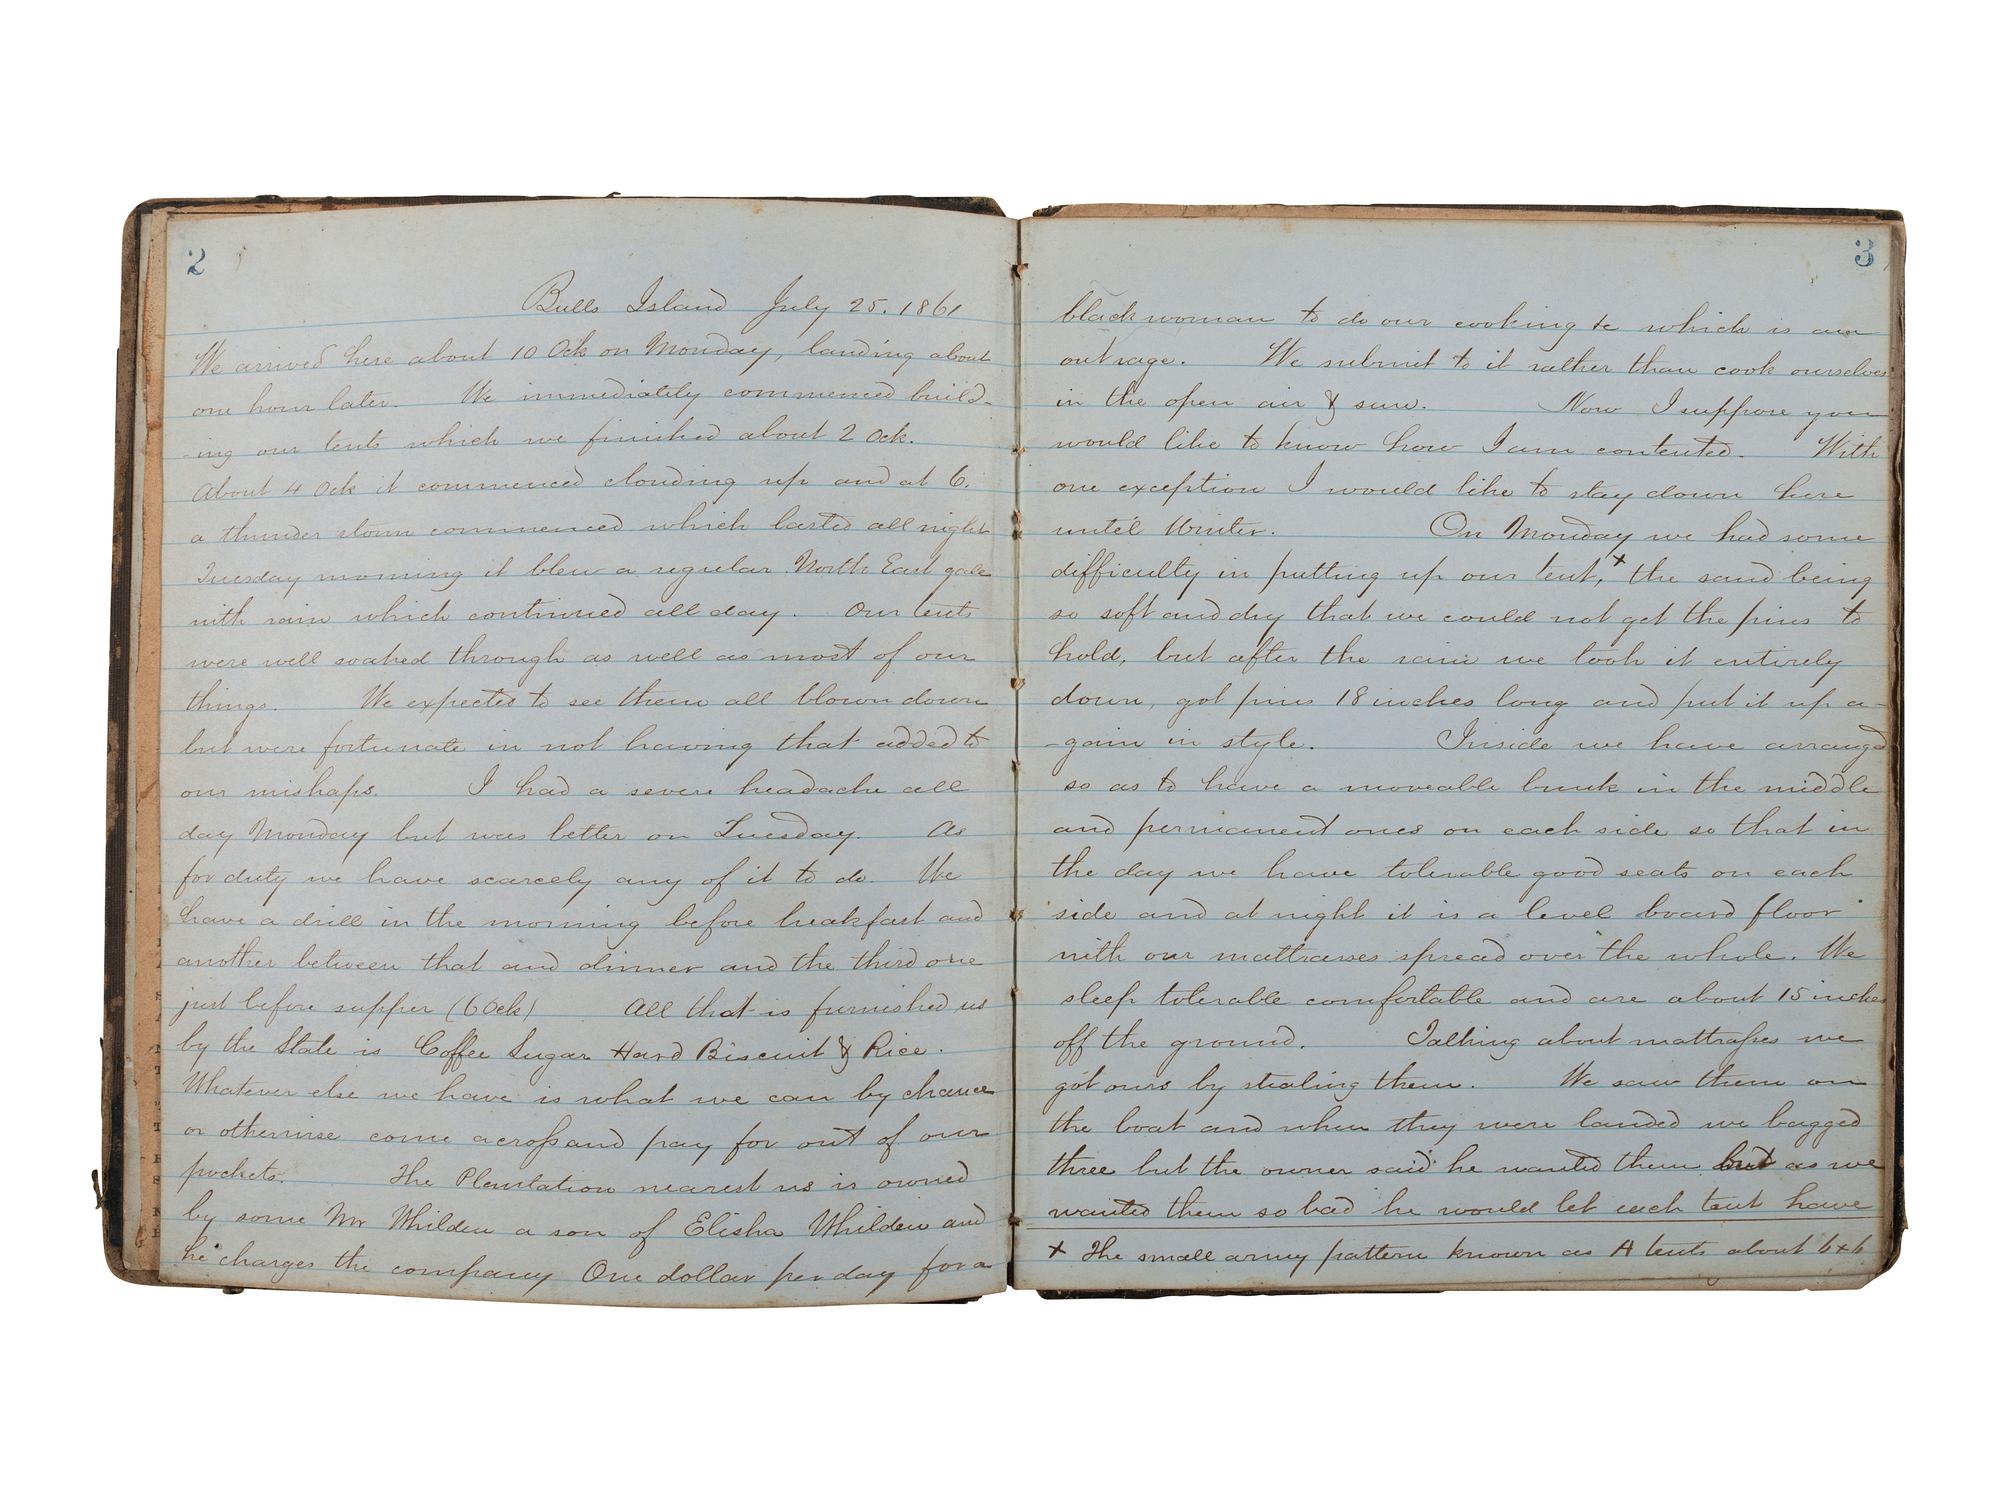 2
Bulls Island July 25. 1861
We arrived here about 10 Ock on Monday, landing about
one hour later. We immediately commenced build-
-ing our tents which we finished about 2 Ock.
About 4 Ock it commenced clouding up and at 6.
a thunder storm commenced which lasted all night
Tuesday morning it blew a regular North East gale
with rain which continued all day. Our tents
were well soaked through as well as most of our
things. We expected to see them all blown down
but were fortunate in not having that added to
our mishaps. I had a severe headache all
day Monday but was better on Tuesday. As
for duty we have scarcely any of it to do. We
have a drill in the morning before breakfast and
another between that and dinner and the third one
just before supper (6 Ock) All that is furnished us
by the State is Coffee Sugar Hard Biscuit & Rice.
Whatever else we have is what we can by chance
or otherwise come across and pay for out of our
pockets. The Plantation nearest us is owned
by some Mr Whilden a son of Elisha Whilden and
he charges the company One dollar per day for a
3
black woman to do our cooking &c which is an
outrage. We submit to it rather than cook ourselves
in the open air & sun. Now I suppose you
would like to know how I am contented. With
one exception I would like to stay down here
until Winter. On Monday we had some
difficulty in putting up our tent,x the sand being
so soft and dry that we could not get the pins to
hold, but after the rain we took it entirely
down, got pins 18 inches long and put it up a-
-gain in style. Inside we have arranged
so as to have a moveable bunk in the middle
and permanent ones on each side so that in
the day we have tolerable good seats on each
side and at night it is a level board floor
with our mattrasses spread over the whole. We
sleep tolerable comfortable and are about 15 inches
off the ground. Talking about mattrasses we
got ours by stealing them. We saw them on
the boat and when they were landed we bagged
three but the owner said he wanted them but as we
wanted them so bad he would let each tent have
x The small army pattern known as A tents about 6x6